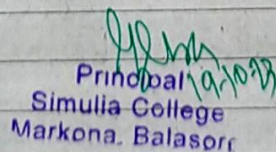 Principal 19.10.23
Simulia College
Markona. Balasore